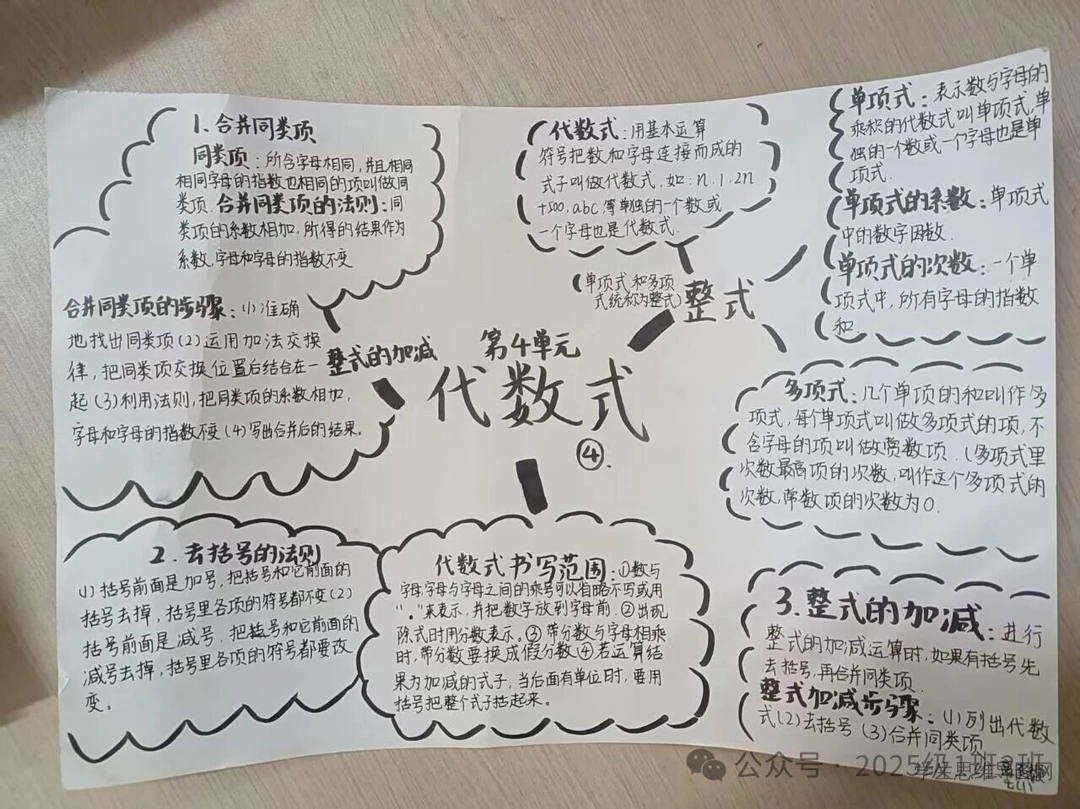 1、合并同类项
同类项：所含字母相同，并且相同
相同字母的指数也相同的项叫做同
类项.合并同类项的法则：同
类项的系数相加，所得的结果作为
系数，字母和字母的指数不变
合并同类项的步骤：(1)准确
地找出同类项(2)运用加法交换
律，把同类项交换位置后结合在一
起(3)利用法则，把同类项的系数相加，
字母和字母的指数不变(4)写出合并后的结果。
整式的加减
第4单元
代数式
④.
代数式：用基本运算
符号把数和字母连接而成的
式子叫做代数式，如：n.1.2n
+500,abc,等单独的一个数或
一个字母也是代数式.
(单项式和多项
式统称为整式)
整式
单项式：表示数与字母的
乘积的代数式叫单项式，单
独的一个数或一个字母也是单
项式.
单项式的系数：单项式
中的数字因数.
单项式的次数：一个单
项式中，所有字母的指数
和.
多项式：几个单项的和叫作多
项式，每个单项式叫做多项式的项，不
含字母的项叫做常数项.(多项式里
次数最高项的次数，叫作这个多项式的
次数，常数项的次数为0.
2.去括号的法则
(1)括号前面是加号，把括号和它前面的
括号去掉，括号里各项的符号都不变(2)
括号前面是减号，把括号和它前面的
减号去掉，括号里各项的符号都要改
变。
代数式书写范围：①数与
字母，字母与字母之间的乘号可以省略不写或用
"."来表示，并把数字放到字母前.②出现
除式时用分数表示。③带分数与字母相乘
时，带分数要换成假分数④若运算结
果为加减的式子，当后面有单位时，要用
括号把整个式子括起来。
3.整式的加减：进行
整式的加减运算时，如果有括号先
去括号，再合并同类项.
整式加减步骤：(1)列出代数
式(2)去括号(3)合并同类项
公众号·2025级1班2班